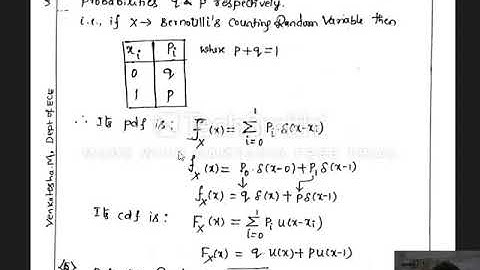 probabilities q & p respectively.
i.e., if X → Bernoulli's Counting Random Variable then
xi Pi where p+q=1
0 q
1 p
∴ Its pdf is: fX(x) = Σ_{i=0}^{1} Pi δ(x-xi)
fX(x) = P0 · δ(x-0) + P1 δ(x-1)
fX(x) = q δ(x) + p δ(x-1)
Its cdf is: FX(x) = Σ_{i=0}^{1} Pi u(x-xi)
FX(x) = q u(x) + p u(x-1)
Venkatesha.M, Dept of ECE